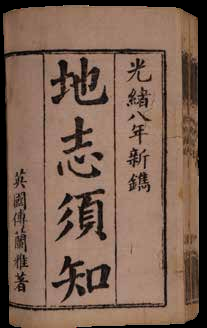 光緒八年新鐫
地志須知
英國傅蘭雅著